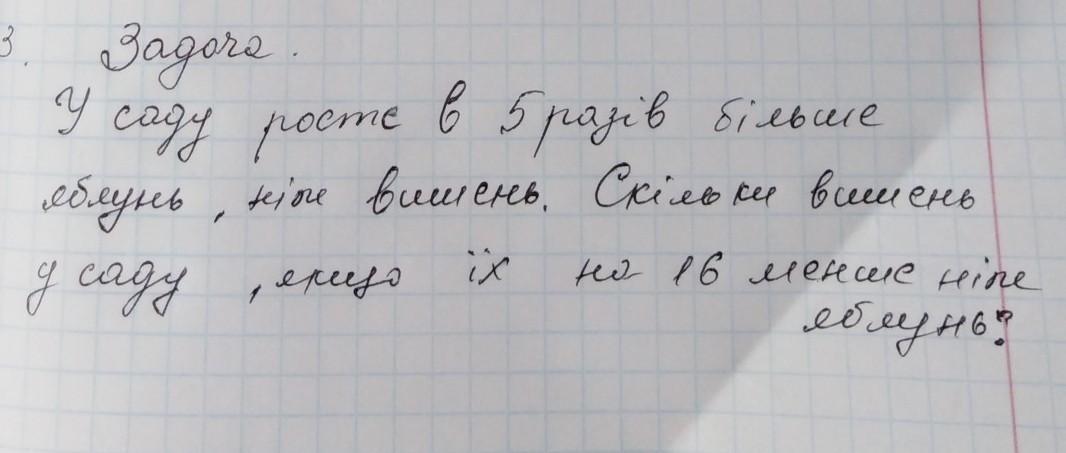 3. Задача.
У саду росте в 5 разів більше
яблунь, ніж вишень. Скільки вишень
у саду, якщо їх на 16 менше ніж
яблунь?